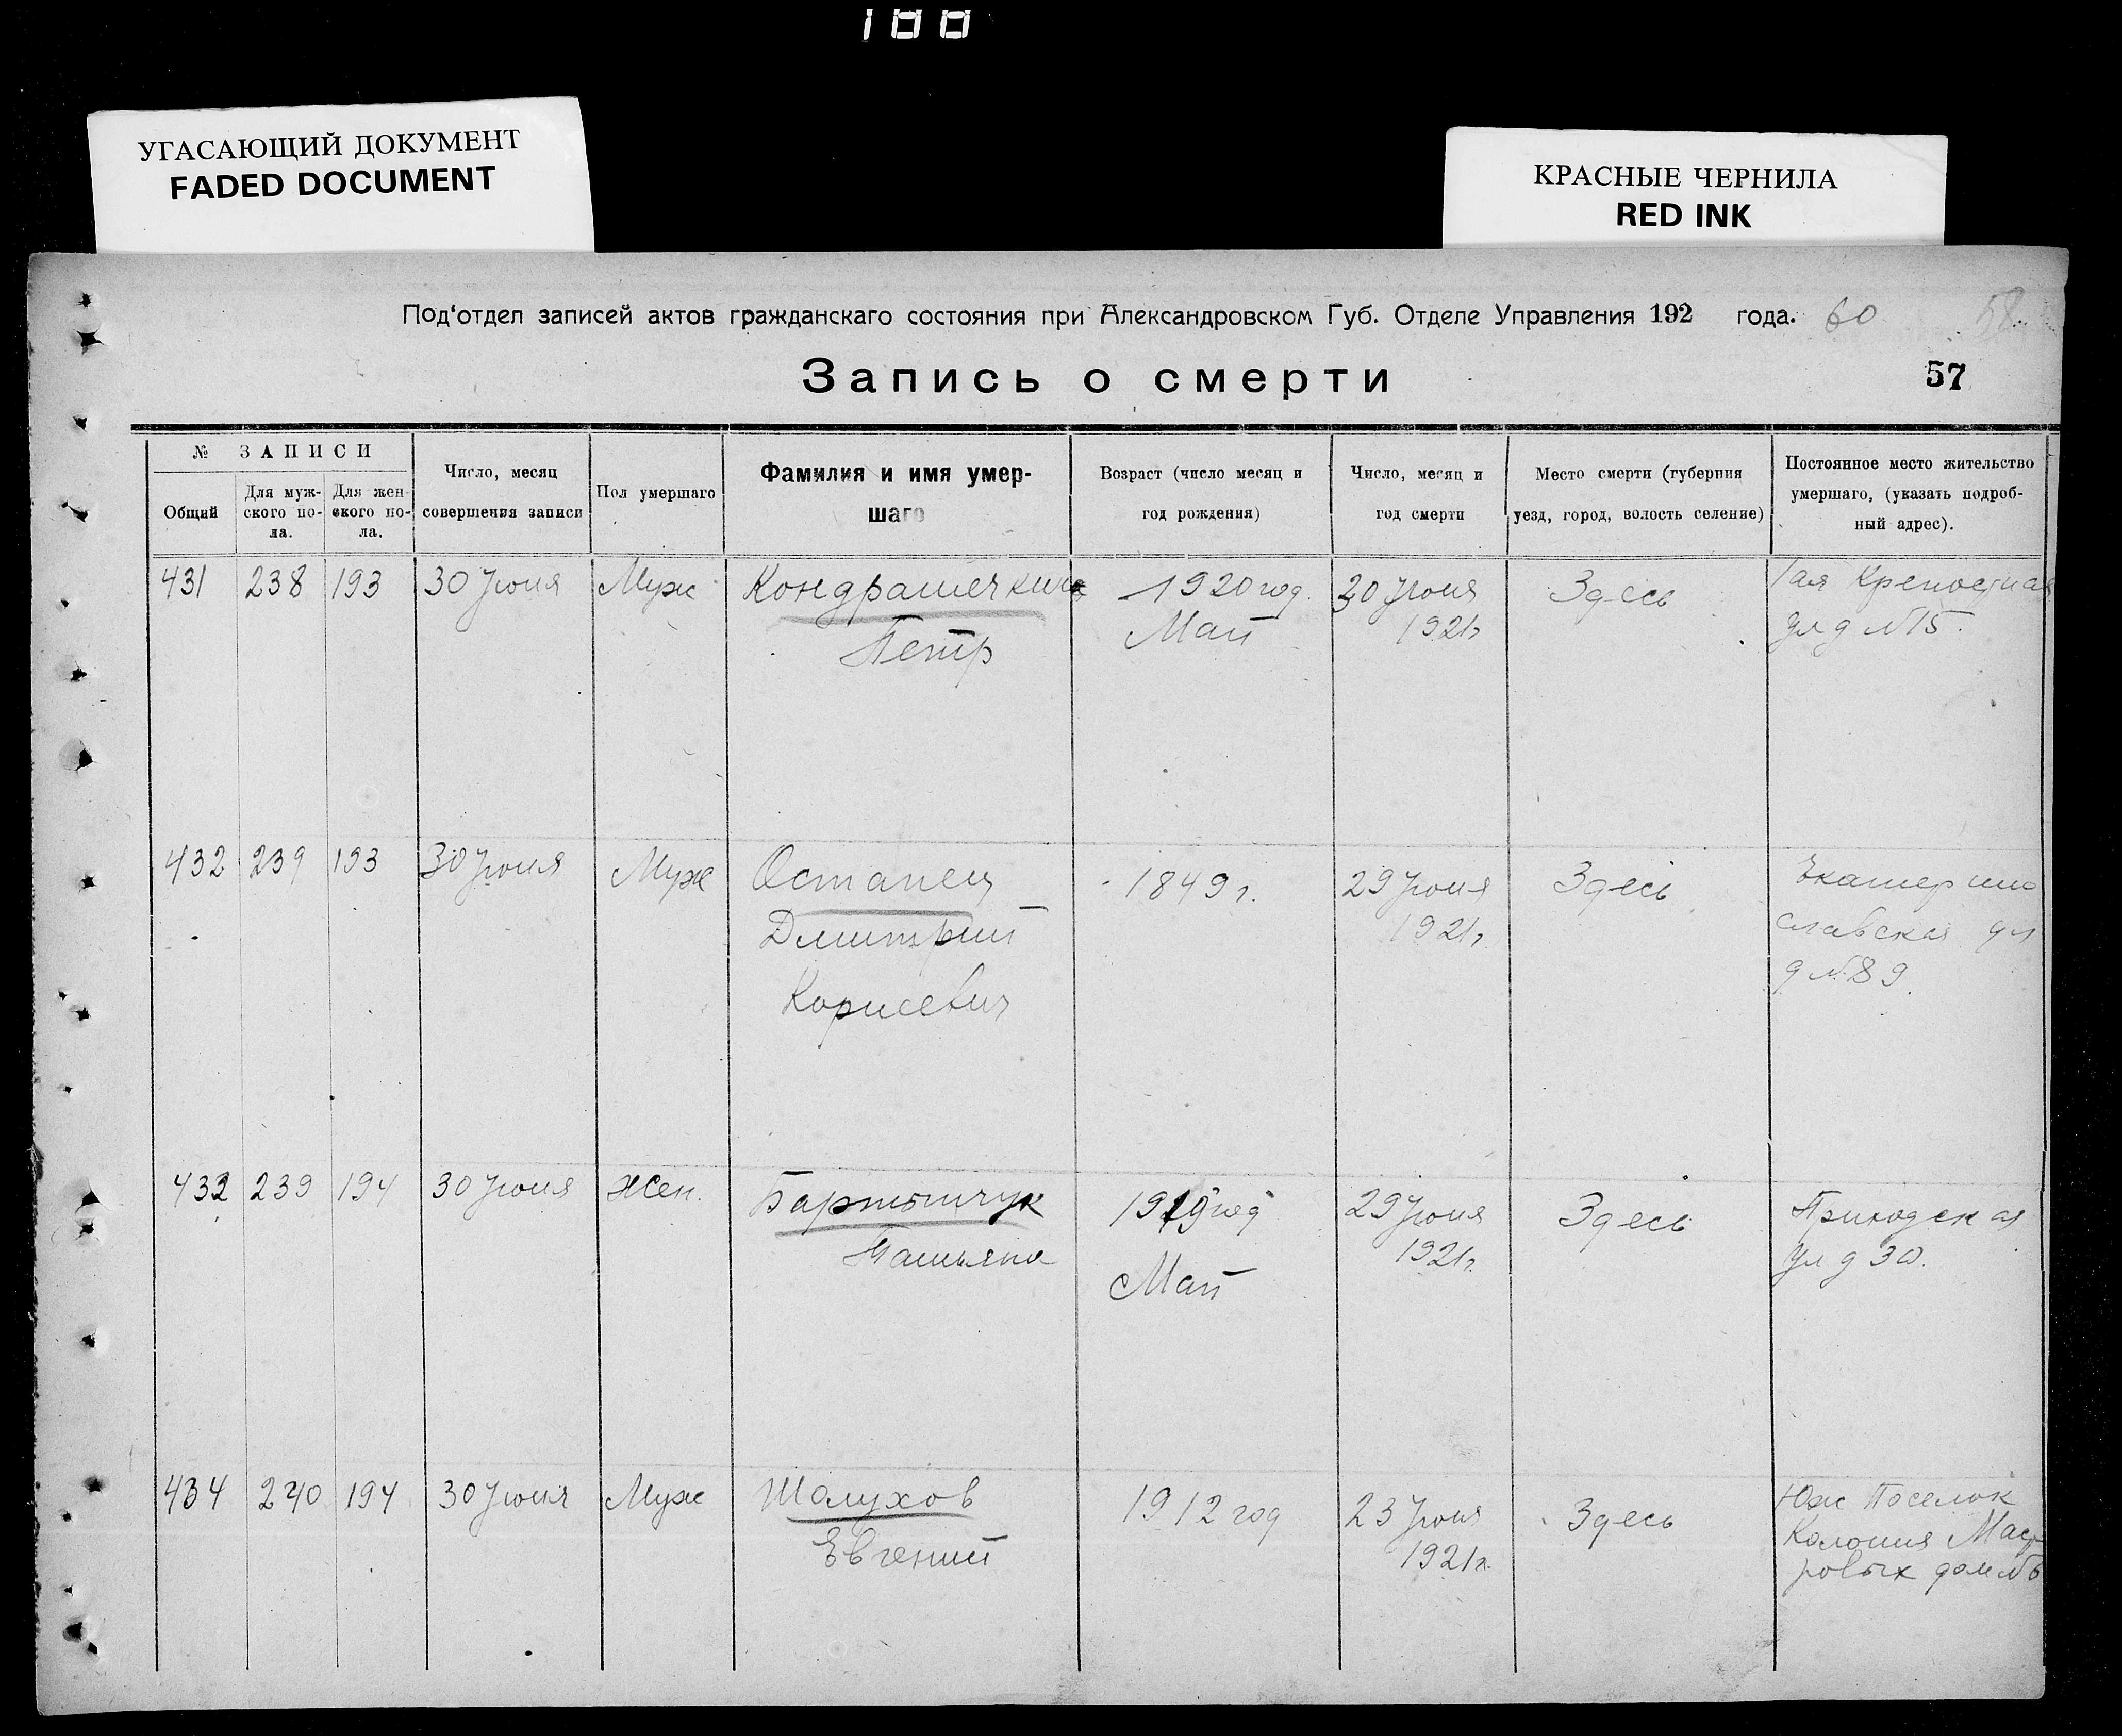 100
УГАСАЮЩИЙ ДОКУМЕНТ
FADED DOCUMENT
КРАСНЫЕ ЧЕРНИЛА
RED INK
Под‘отдел записей актов гражданскаго состояния при Александровском Губ. Отделе Управления 192 года. 60 58
Запись о смерти
57
№ ЗАПИСИ
Общий
Для муж-
ского по-
ла.
Для жен-
ского по-
ла.
Число, месяц
совершения записи
Пол умершаго
Фамилия и имя умер-
шаго
Возраст (число месяц и
год рождения)
Число, месяц и
год смерти
Место смерти (губерния
уезд, город, волость селение)
Постоянное место жительство
умершаго, (указать подроб-
ный адрес).
431 238 193 30 Июня Муж
Кондрашечкин
Петр
1920 год.
Май
30 Июня
1921г
Здесь
Гая Крепостная
ул д №15.
432 239 193 30 Июня Муж
Остапец
Дмитрий
1849 г.
29 Июня
1921г.
Здесь
Екатерино
славская ул
д №89.
432 239 194 30 Июня Жен.
Татьяна
1919 год
Май
29 Июня
1921г.
Здесь
Приходская
ул д 30.
434 240 194 30 Июня Муж
Шолухов
Евгений
1912 год
23 Июня
1921г.
Здесь
Юж Поселок
Колония Маст
ровых дом №6